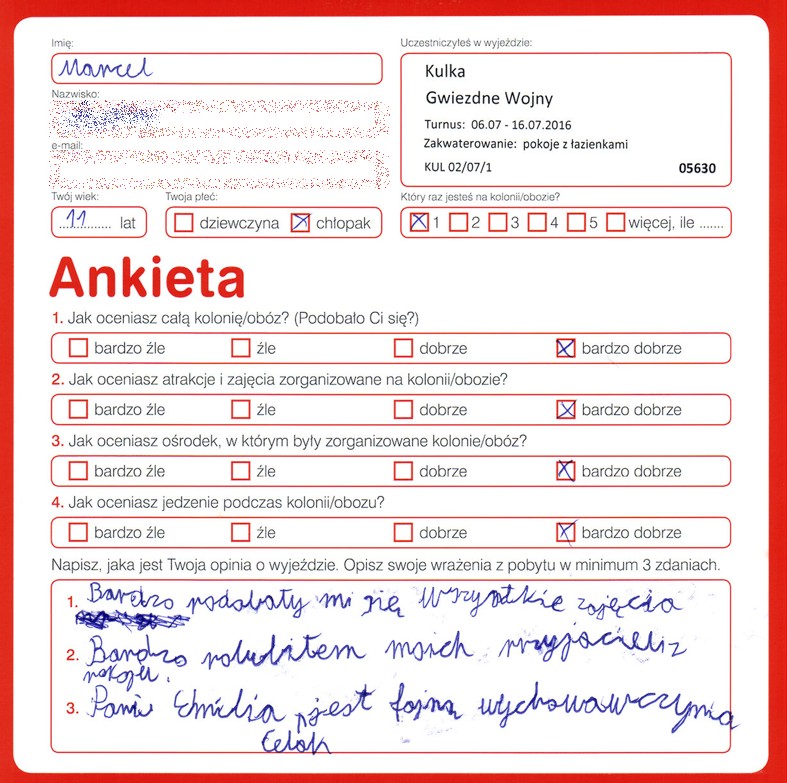 Imię:
Marcel
Uczestniczyłeś w wyjeździe:
Kulka
Gwiezdne Wojny
Turnus: 06.07 - 16.07.2016
Zakwaterowanie: pokoje z łazienkami
KUL 02/07/1 05630
Nazwisko:
e-mail:
Twój wiek:
11 lat
Twoja płeć:
dziewczyna chłopak
Który raz jesteś na kolonii/obozie?
1 2 3 4 5 więcej, ile .......
Ankieta
1. Jak oceniasz całą kolonię/obóz? (Podobało Ci się?)
bardzo źle źle dobrze bardzo dobrze
2. Jak oceniasz atrakcje i zajęcia zorganizowane na kolonii/obozie?
bardzo źle źle dobrze bardzo dobrze
3. Jak oceniasz ośrodek, w którym były zorganizowane kolonie/obóz?
bardzo źle źle dobrze bardzo dobrze
4. Jak oceniasz jedzenie podczas kolonii/obozu?
bardzo źle źle dobrze bardzo dobrze
Napisz, jaka jest Twoja opinia o wyjeździe. Opisz swoje wrażenia z pobytu w minimum 3 zdaniach.
1. Bardzo podobały mi się wszystkie zajęcia
2. Bardzo polubiłem moich przyjacieli z
pokoju.
3. Pani Emilia jest fajną wychowawczynią